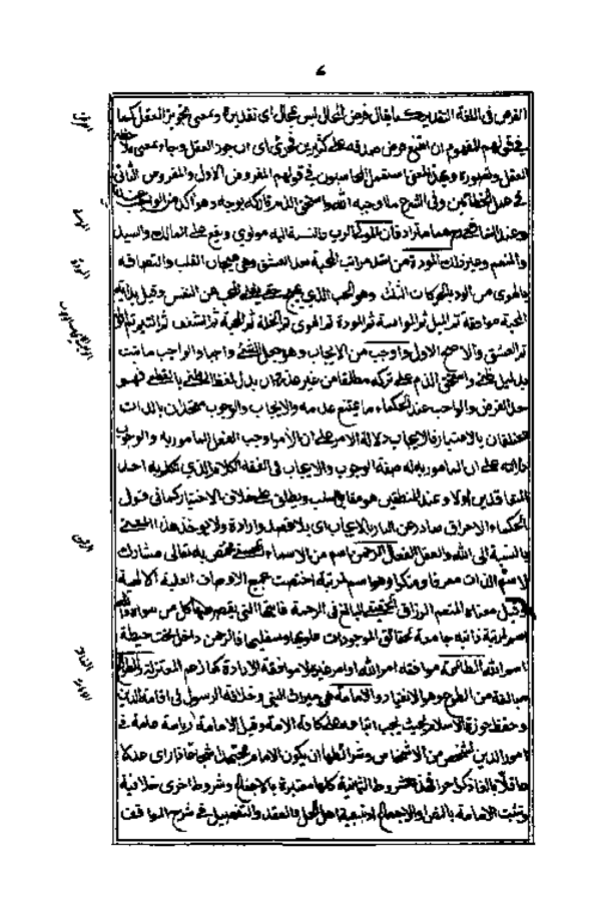 الفرض في اللغة التقدير كما يقال فرض المحال ليس بمحال اي تقديره وبمعنى تجويز العقل كما
في قولهم المفهوم ان امتنع فرض صدقه على كثيرين فجزئي اي ان جوز العقل وجاء بمعنى ملاحظة
العقل وتصوره وبهذا المعنى استعمل المحاسبون في قولهم المفروض الاول والمفروض الثاني
في عمل الخطائين وفي الشرع ما اوجبه الله واستحق الذم تاركه بوجه وهو آكد من الواجب
وعند الشافعي هما مترادفان المولى الرب بالنسبة اليه مولوي ويقع على المالك والسيد
والمنعم وغير ذلك المودة من اشد مراتب المحبة بعد العشق وهي هيجان القلب والتصاقه
بالهوى من الود بالحركات الثلث وهو الحب الذي
المحبة موافقة ثم الميل ثم المواسة ثم المودة ثم الهوى ثم الخلة ثم المحبة ثم الشغف ثم التتيم ثم الوله
ثم العشق والاصح الاول واوجب من الايجاب وهو جعل الشيء واجبا والواجب ما ثبت
بدليل ظني واستحق الذم على تركه مطلقا من غير عذر فان بدل لفظ الظني بالقطعي فهو
حد الفرض والواجب عند الحكماء ما يمتنع عدمه والايجاب والوجوب متحدان بالذات
مختلفان بالاعتبار فالايجاب دلالة الامر على ان الآمر اوجب الفعل المامور به والوجوب
دلالته على ان المامور به له صفة الوجوب والايجاب في الفقه الكلام الذي تكلم به احد
المتعاقدين اولا وعند المنطقيين هو مقابل السلب ويطلق على خلاف الاختيار كما في قول
الحكماء الاحراق صادر عن النار بالايجاب اي بلا قصد وارادة ولا يوخذ هذا المعنى
بالنسبة الى الله والعقل الفعال الرحمن اسم من الاسماء مختص به تعالى مشارك
لاسم الذات معرفا ومنكرا وهو اسم لمرتبة اختصت بجميع الاوصاف العلية الالهية
وقيل معناه المنعم الرزاق الحقيقي البالغ في الرحمة غايتها التي يقصر عنها كل من سواه
اسم لمرتبة ذاتية جامعة لحقائق الموجودات علويها وسفليها فالرحمن داخل تحت حيطة
اسم الله الطاعة موافقة امر الله او امر غيره لا موافقة الارادة كما زعم المعتزلة
مبالغة من الطوع وهو الانقياد والامامة هي ميراث النبي وخلافة الرسول في اقامة الدين
وحفظ حوزة الاسلام بحيث يجب اتباعه على كافة الامة وقيل الامامة رياسة عامة في
امور الدين لشخص من الاشخاص وشرائطها ان يكون الامام مجتهدا شجاعا ذا راى عدلا
عاقلا بالغا ذكرا حرا فهذه شروط الثمانية كلها معتبرة بالاجماع وشروط اخرى خلافية
وتثبت الامامة بالنص والاجماع او ببيعة اهل الحل والعقد والتفصيل في شرح المواقف